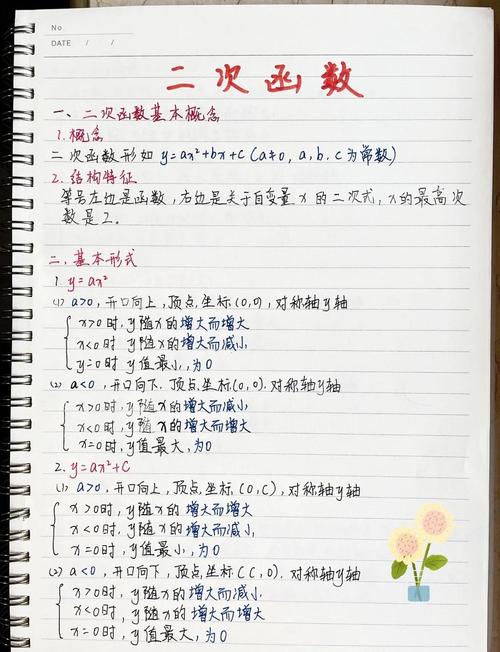 No.
DATE / /
二次函数
一、二次函数基本概念
1.概念
二次函数形如 y=ax²+bx+c (a≠0, a, b, c为常数)
2.结构特征
等号左边是函数,右边是关于自变量x的二次式,x的最高次
数是2。
二.基本形式
1. y=ax²
(1) a>0,开口向上,顶点坐标(0,0),对称轴y轴
x>0时,y随x的增大而增大
x<0时 y随x的增大而减小
y=0时 y值最小,为0
(2) a<0,开口向下.顶点坐标(0,0).对称轴y轴
x>0时,y随x的增大而减小
x<0时,y随x的增大而增大
x=0时,y值最大,为0
2. y=ax²+C
(1) a>0,开口向上,顶点坐标(0,C),对称轴y轴
x>0时,y随x的增大而增大
x<0时,y随x的增大而减小,
x=0时,y值最小,为0
(2) a<0,开口向下,顶点坐标(C,0).对称轴y轴
x>0时,y随x的增大而减小.
x<0时,y随x的增大而增大
x=0时,y值最大,为0